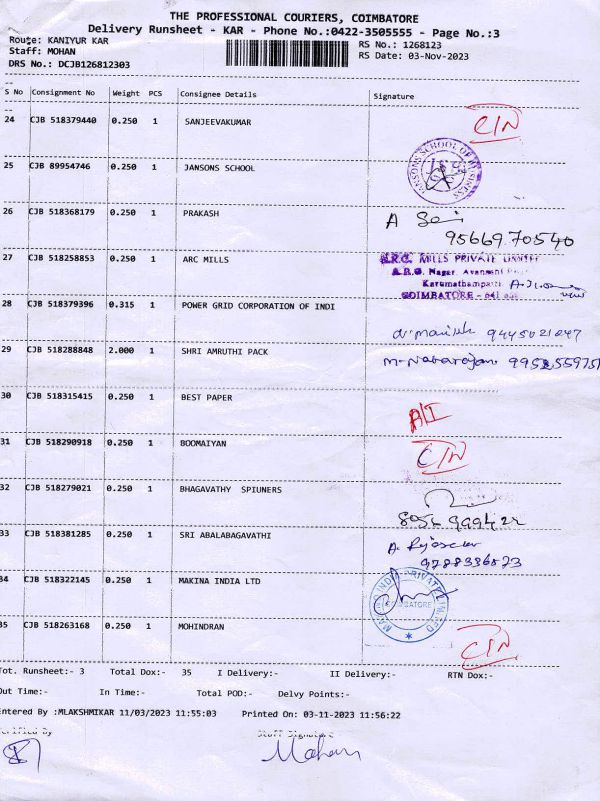 THE PROFESSIONAL COURIERS, COIMBATORE
Delivery Runsheet - KAR - Phone No.:0422-3505555 - Page No.:3
Route: KANIYUR KAR
RS No.: 1268123
Staff: MOHAN
RS Date: 03-Nov-2023
DRS No.: DCJB126812303
S No Consignment No Weight PCS Consignee Details Signature
24 CJB 518379440 0.250 1 SANJEEVAKUMAR C/N
25 CJB 89954746 0.250 1 JANSONS SCHOOL JANSONS SCHOOL OF BUSINESS
26 CJB 518368179 0.250 1 PRAKASH A
9566970540
27 CJB 518258853 0.250 1 ARC MILLS A.R.C. MILLS PRIVATE LIMITED
A.R.C. Nagar, Avanashi
Karumathampatti
COIMBATORE - 641
28 CJB 518379396 0.315 1 POWER GRID CORPORATION OF INDI
9445021247
29 CJB 518288848 2.000 1 SHRI AMRUTHI PACK
30 CJB 518315415 0.250 1 BEST PAPER A/I
31 CJB 518290918 0.250 1 BOOMAIYAN C/N
32 CJB 518279021 0.250 1 BHAGAVATHY SPIUNERS
33 CJB 518381285 0.250 1 SRI ABALABAGAVATHI
9788336523
34 CJB 518322145 0.250 1 MAKINA INDIA LTD INDIA PRIVATE LIMITED COIMBATORE
35 CJB 518263168 0.250 1 MOHINDRAN C/N
Tot. Runsheet:- 3 Total Dox:- 35 I Delivery:- II Delivery:- RTN Dox:-
Out Time:- In Time:- Total POD:- Delvy Points:-
Entered By :MLAKSHMIKAR 11/03/2023 11:55:03 Printed On: 03-11-2023 11:56:22
Verified By Staff Signature
Mohan